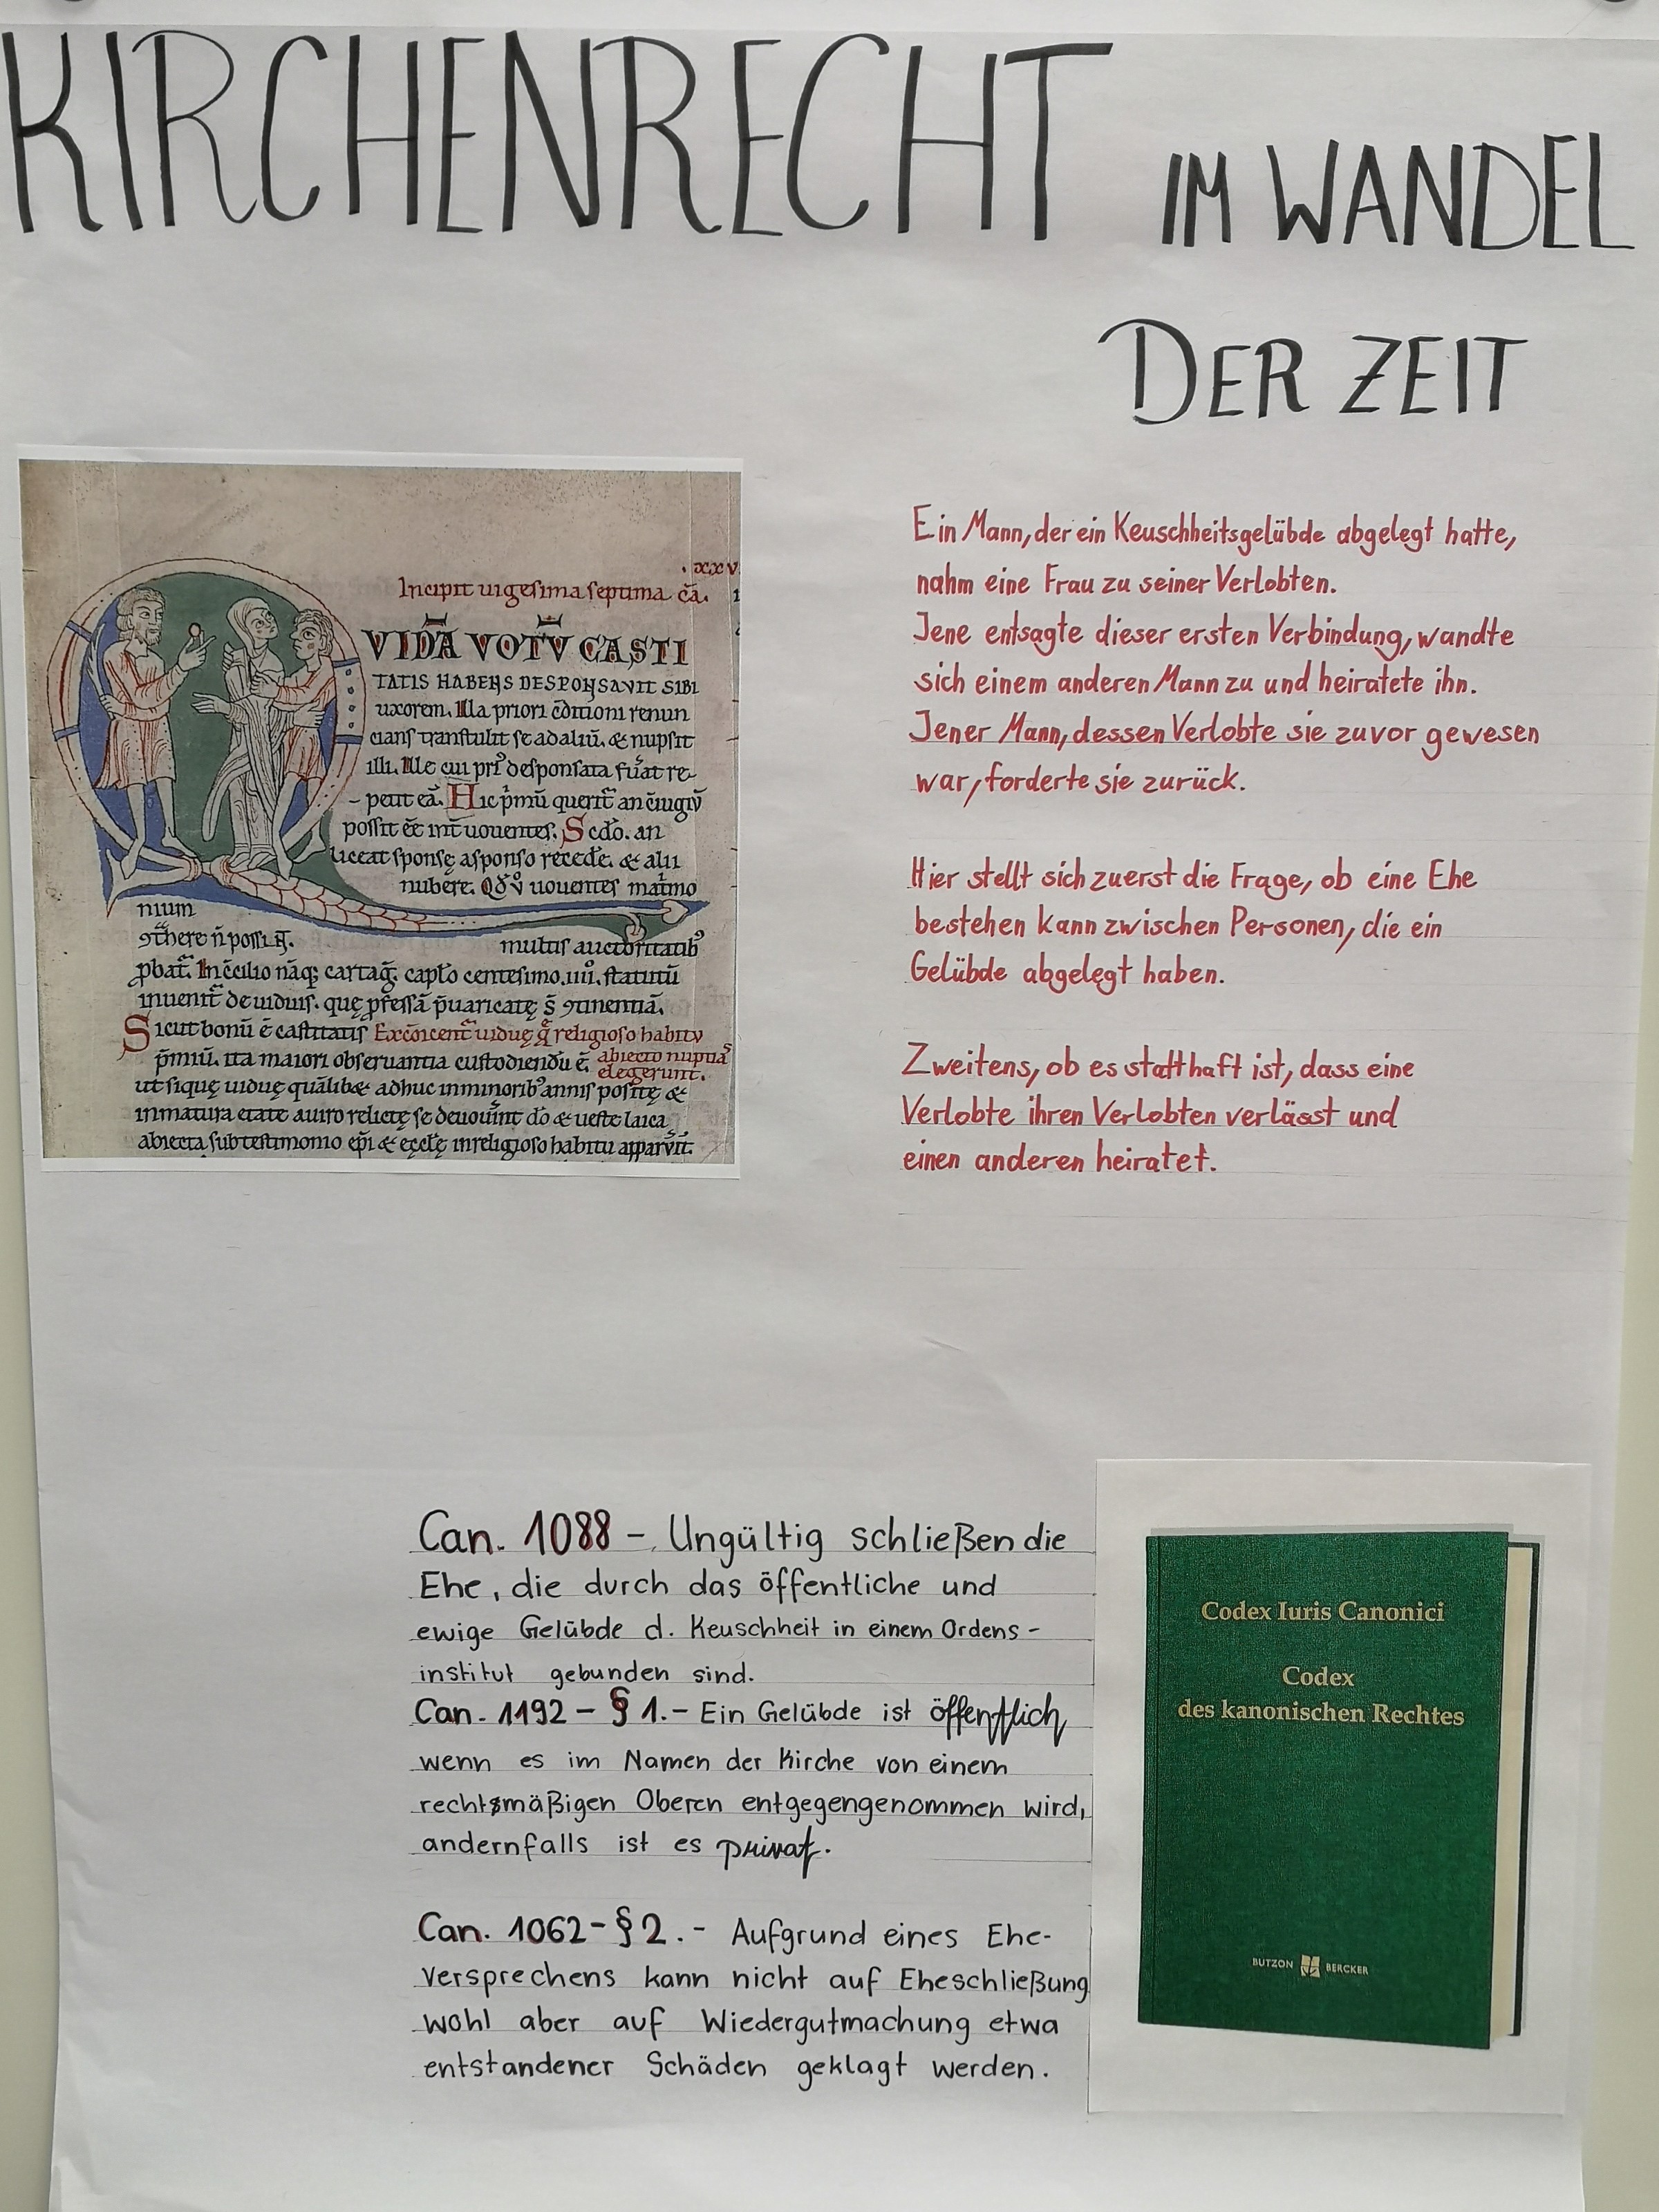 KIRCHENRECHT IM WANDEL
DER ZEIT
. xxv
Incipit uigesima septima cā.
VIDĀ VOTV̄ CASTI
TATIS HABENS DESPONSAVIT SIBI
uxorem. Illa priori c̄ditioni renun
cians transtulit se ad aliū. & nupsit
illi. Ille cui pri᷒ desponsata fuat re-
- petit eā. Hic p̄mū querit an c̄iugiū
possit ēē int uouentes. Scdo. an
liceat sponsę a sponso recede. & alii
nubere. Qd v̊ uouentes matmo
nium
ꝯthere n̄ possi
multis auctoritatib᷒
ꝓbat. In c̄cilio nāq; cartaḡ. capto centesimo.iiii. statutū
inuenit de uiduis. quę ꝓfessā p̄uaricatę s̄ ꝯtinentiā.
Sicut bonū ē castitatis Excōīcent uiduę q̄ religioso habitu
p̄miū. ita maiori obseruantia custodiendū ē. abiecto nuptias
elegerunt.
ut siquę uiduę quālibet adhuc in minorib᷒ annis positę &
inmatura etate a uiro relictę se deuouint do & ueste laica
abiecta sub testimonio epi & ecclę in religioso habitu apparuit.
Ein Mann, der ein Keuschheitsgelübde abgelegt hatte,
nahm eine Frau zu seiner Verlobten.
Jene entsagte dieser ersten Verbindung, wandte
sich einem anderen Mann zu und heiratete ihn.
Jener Mann, dessen Verlobte sie zuvor gewesen
war, forderte sie zurück.
Hier stellt sich zuerst die Frage, ob eine Ehe
bestehen kann zwischen Personen, die ein
Gelübde abgelegt haben.
Zweitens, ob es statthaft ist, dass eine
Verlobte ihren Verlobten verlässt und
einen anderen heiratet.
Can. 1088 - Ungültig schließen die
Ehe, die durch das öffentliche und
ewige Gelübde d. Keuschheit in einem Ordens-
institut gebunden sind.
Can. 1192 - § 1. - Ein Gelübde ist öffentlich
wenn es im Namen der Kirche von einem
rechtsmäßigen Oberen entgegengenommen wird,
andernfalls ist es privat.
Can. 1062 - § 2. - Aufgrund eines Ehe-
versprechens kann nicht auf Eheschließung
wohl aber auf Wiedergutmachung etwa
entstandener Schäden geklagt werden.
Codex Iuris Canonici
Codex
des kanonischen Rechtes
BUTZON BERCKER